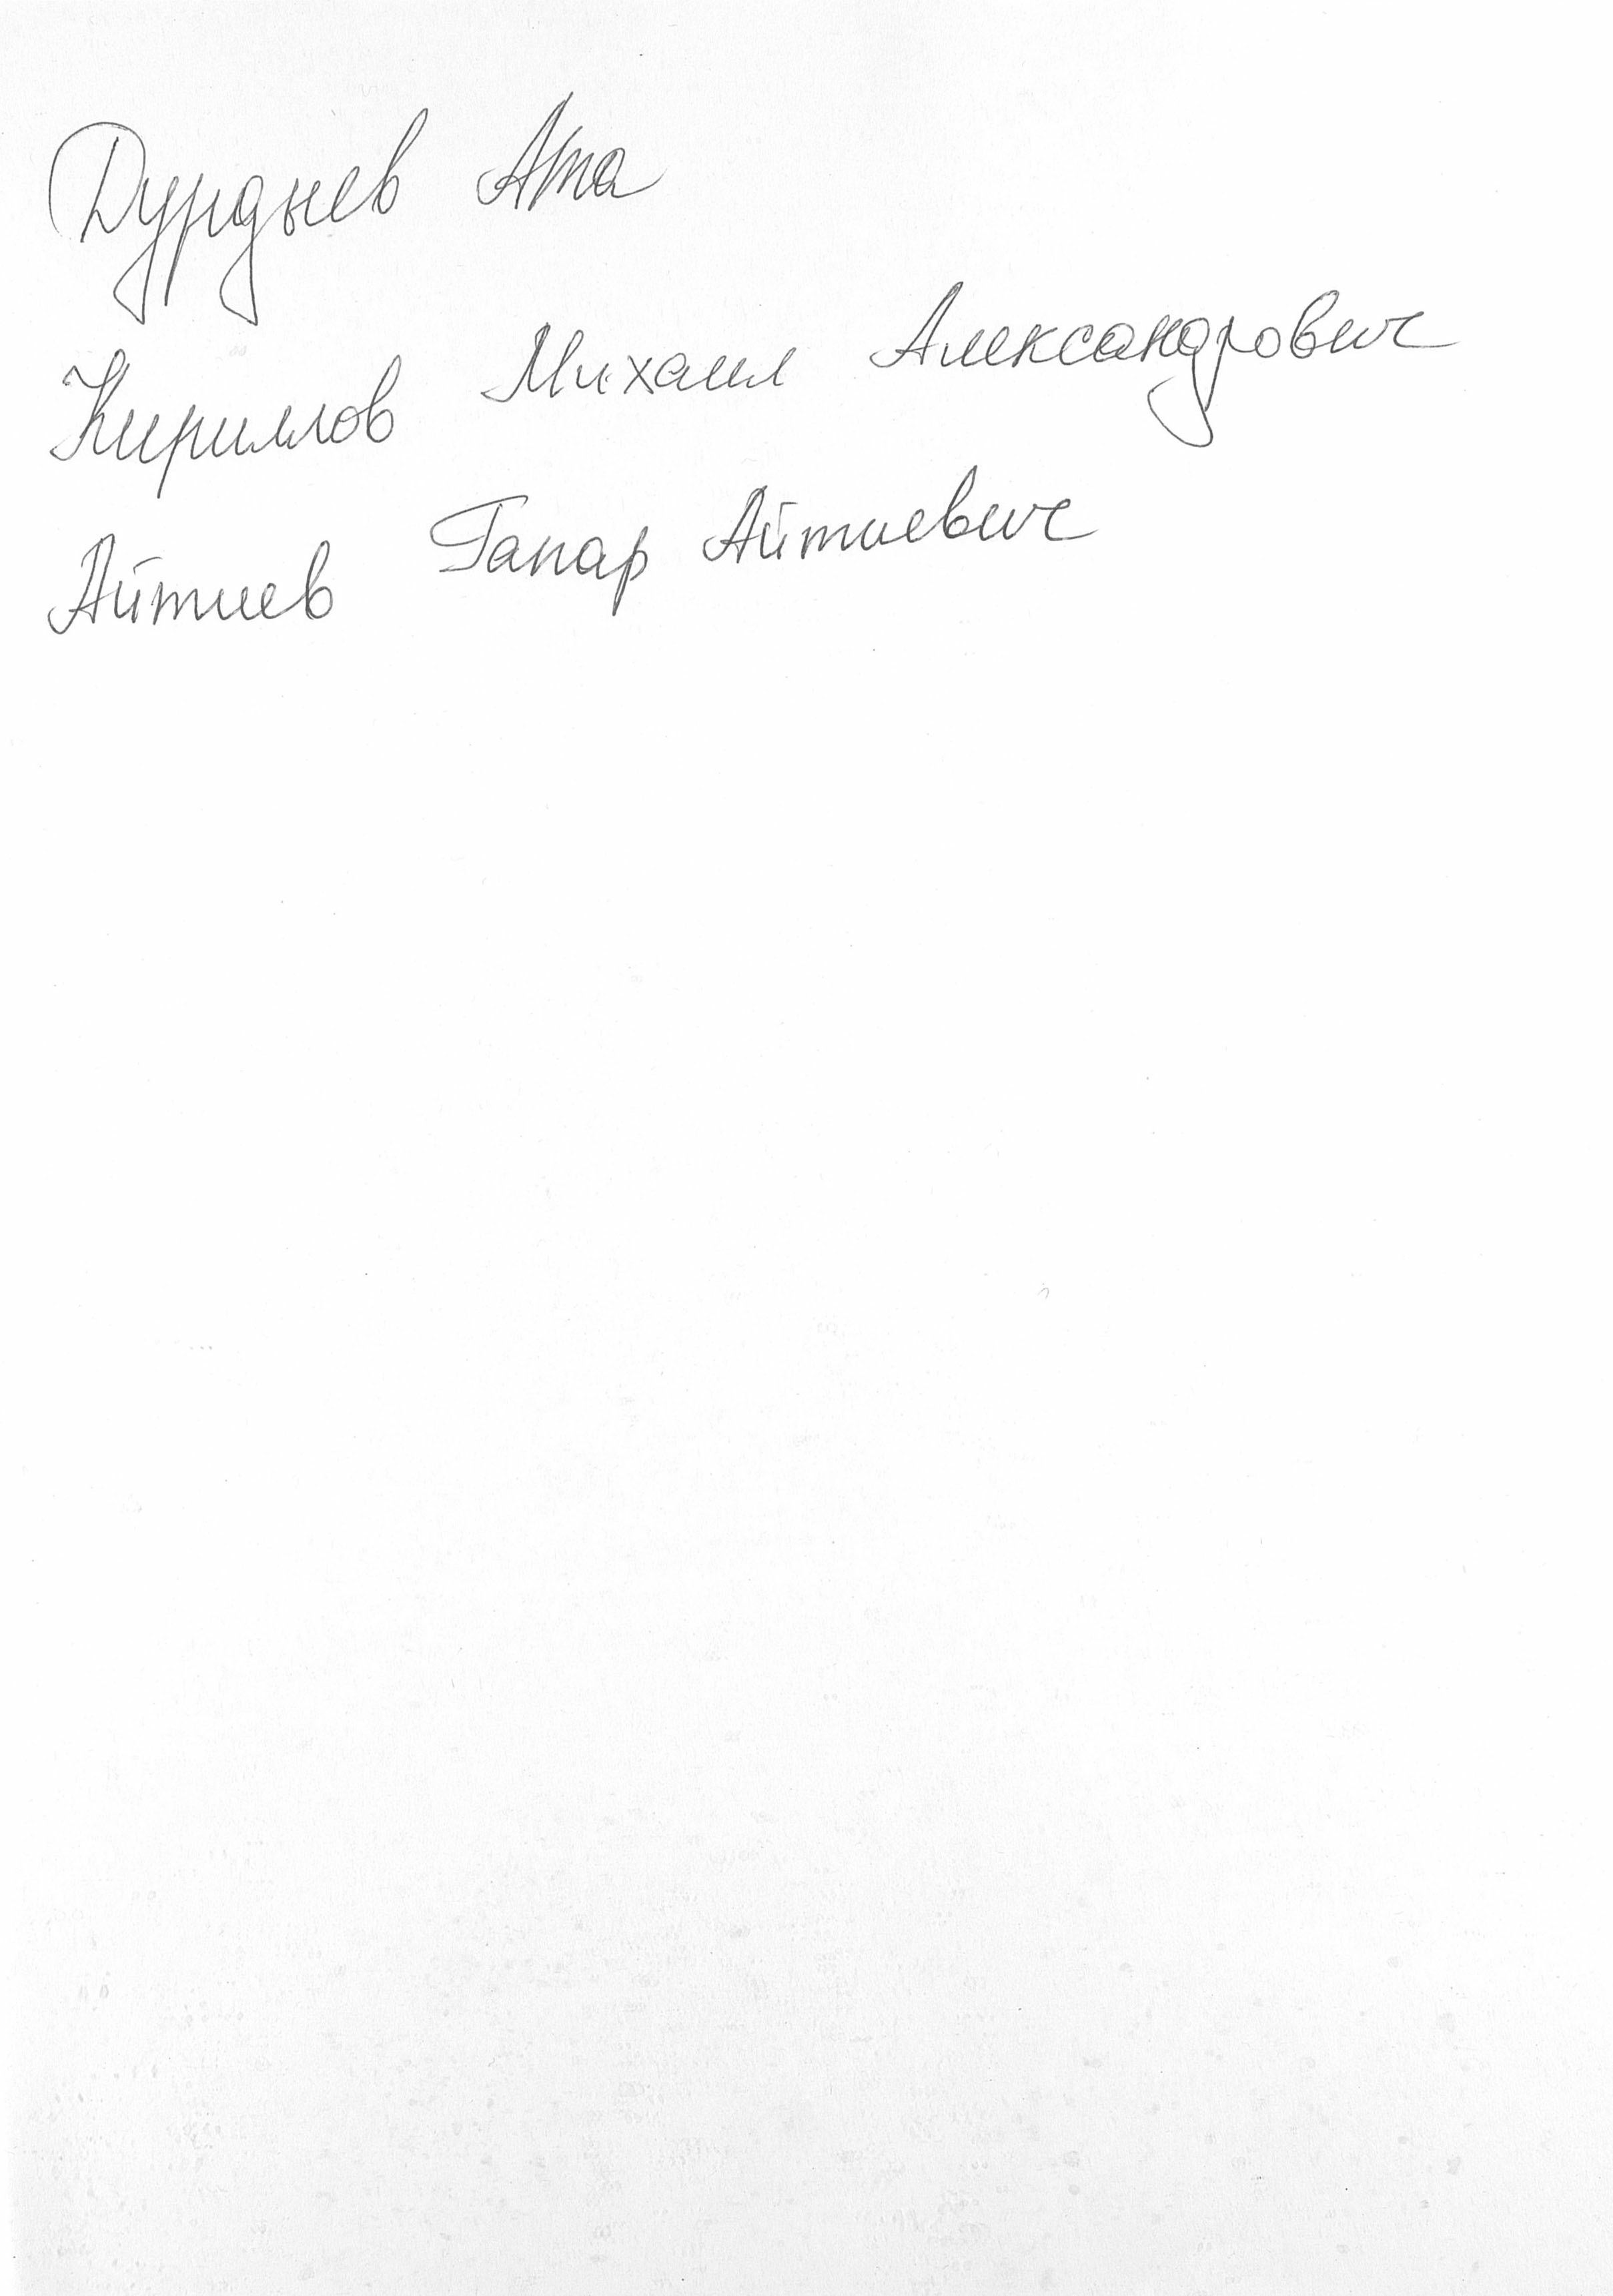 Дурдыев Ата
Кириллов Михаил Александрович
Айтиев Гапар Айтиевич